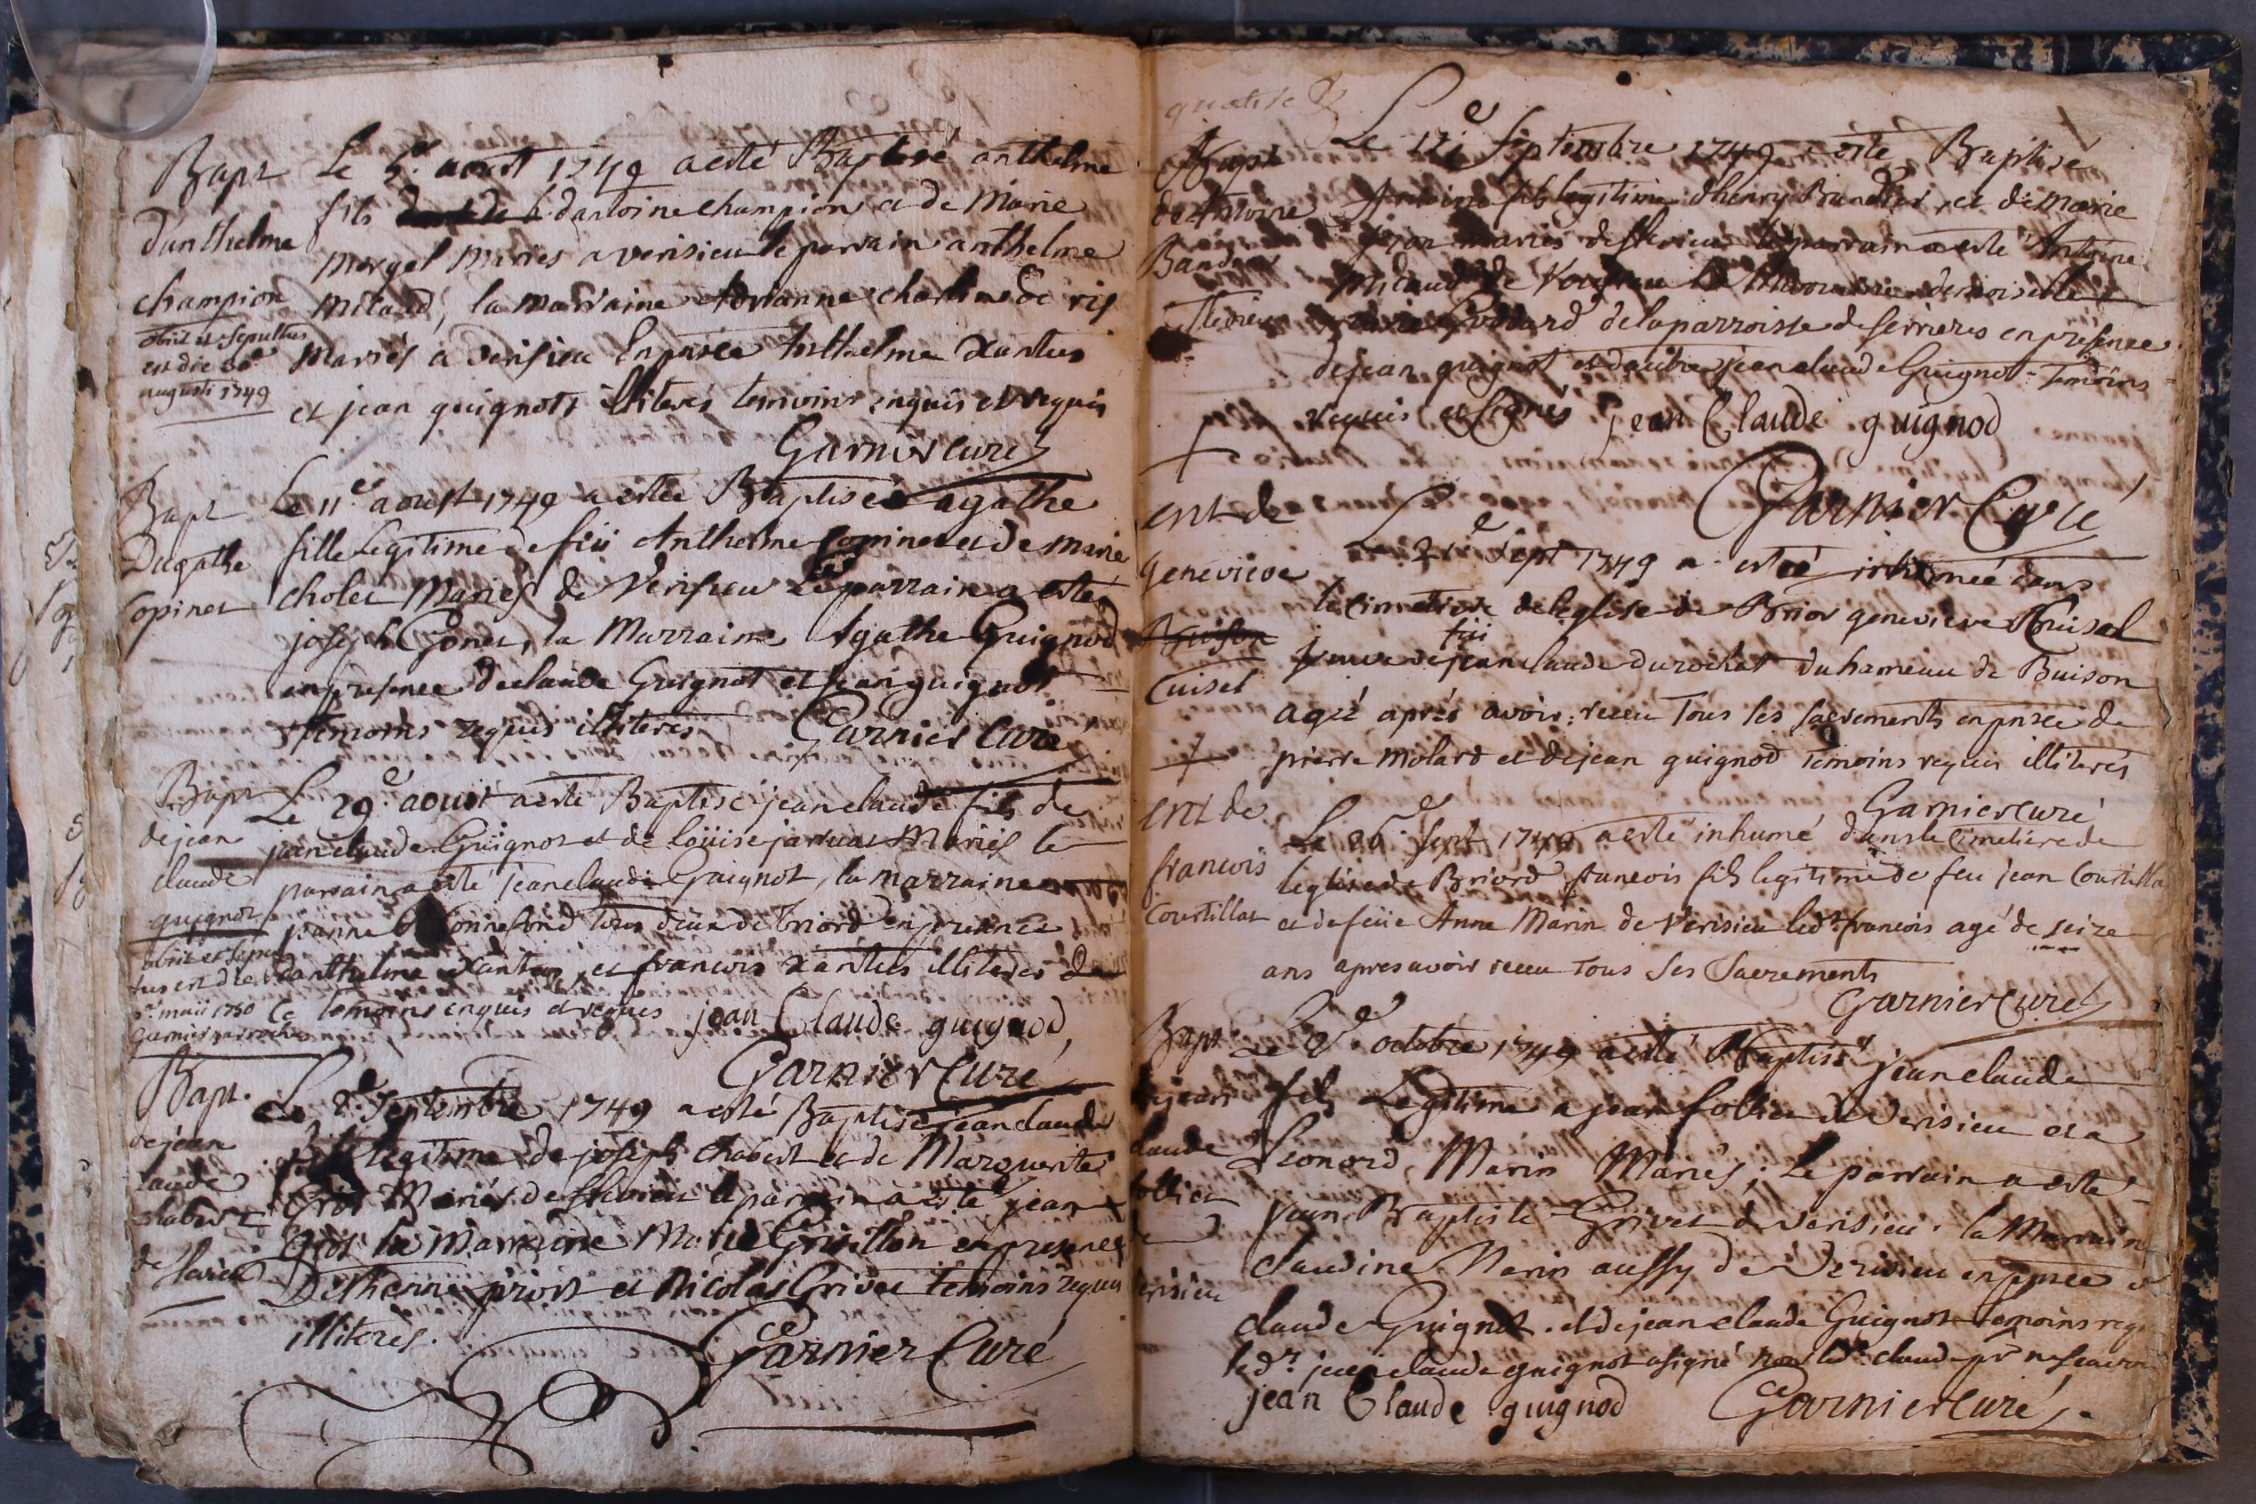 Bapt
d'anthelme
champion
obiit et sepultus
est die 30a
augusti 1749
Le 5e aoust 1749 a esté Baptisé anthelme
fils d'antoine champion et de Marie
mergel mariés a verisieu le parrain anthelme
milard, la marraine
mariés a verisieu En pnce Anthelme Xantus
et jean guignot illiterés temoins enquis et requis
Garnier curé
Bapt
Dagathe
Copinet
Le 11e aoust 1749 a estée Baptisée agathe
fille Legitime de feü Anthelme Copinet et de marie
cholet Mariés de Verisieu Le parrain a esté
joseph Gonet, la Marraine Agathe Guignod
en presence de claude Guignot et jean guignot
temoins requis illiterés Garnier Curé
Bapt
de jean
claude
guignot
obiit et sepul
tus est die
maii 1750
Garnier parrochus
Le 29e aoust a esté Baptisé jean claude fils de
jean claude Guignot et de Loüise jarnat Mariés le
parrain a esté jean claude Guignot, la marraine
jeanne Bonnefond tous deux de Briord en presence
d'anthelme Xantus, et francois Xantus illiterés de
ce temoins enquis et requis jean Claude guignod
Garnier Curé
Bapt.
de jean
claude
chabert
de flavieu
Le 8e Septembre 1749 a esté Baptisé jean claude
fils legitime de joseph chabert et de Marguerite
Grot Mariés de flevieu le parrain a esté jean
Grot la Marraine Marie Grisillon en presence
D'Ethienne priost et Nicolas Grivet temoins requis
illiterés.
Garnier Curé
quatre
Bapt
de Antoine
Bandier
flevieu
Le 12e Septembre 1749 a esté Baptisé
Antoine fils legitime d'henry Bandier et de marie
mariés de flevieu le parrain a esté Antoine
micaud de la marraine demoiselle
Goddard de la parroisse de serrieres en presence
de jean guignot et d'autre jean claude Guignot Temoins
requis et signés jean Claude guignod
Garnier Curé
ent de
Genevieve
Cuisel
Le 21e Sept 1749 a estée inhumée dans
le cimetiere de l'eglise de Brior genevieve Cuisel
feü
veuve de jean claude durochat du hameau de Buison
agée aprés avoir receu Tous les sacrements en pnce de
pierre Molard et de jean guignod Temoins requis illiterés
Garnier curé
ent de
francois
Courtillat
Le 26e Sept 1749 a esté inhumé dans le cimetiere de
l'eglise de Briord francois fils legitime de feu jean Courtillat
et de feüe Anne Marin de Verisieu led.t francois agé de seize
ans apres avoir receu Tous Ses Sacrements
Garnier Curé
Bapt.
de jean
claude
follieu
de
verisieu
Le 9e octobre 1749 a esté Baptisé jean claude
fils Legitime a jean follieu de Verisieu et a
Leonord Marin Mariés; Le parrain a esté
jean Baptiste Grivet de verisieu. la Marraine
claudine Marin aussy de Verisieu en pnce de
claude Guignot. et de jean claude Guignot temoins requis
led.t jean claude guignot a signé non led.t claude pr ne scavoir
jean Claude guignod Garnier curé